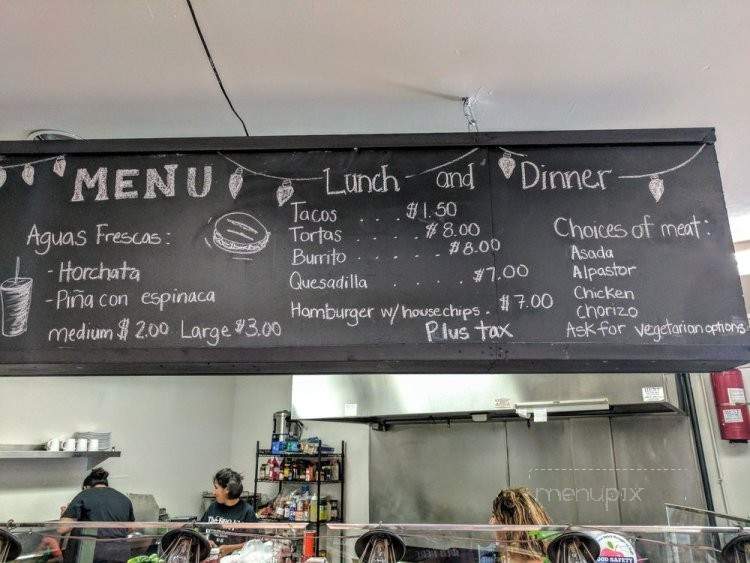 MENU
Aguas Frescas:
- Horchata
- Piña con espinaca
medium $2.00 Large $3.00
Lunch and Dinner
Tacos . . . . $1.50
Tortas . . . . . $8.00
Burrito . . . . . . $8.00
Quesadilla . . . . . $7.00
Hamburger w/ house chips . $7.00
Plus tax
Choices of meat:
Asada
Alpastor
Chicken
Chorizo
Ask for vegetarian options
menupix
FOOD SAFETY